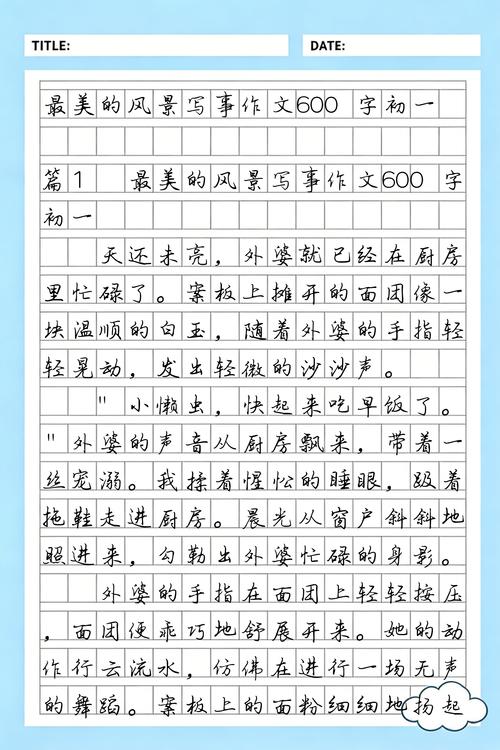 TITLE:
DATE:
最美的风景写事作文600 字初一
篇1 最美的风景写事作文600 字
初一
天还未亮，外婆就已经在厨房
里忙碌了。案板上摊开的面团像一
块温顺的白玉，随着外婆的手指轻
轻晃动，发出轻微的沙沙声。
"小懒虫，快起来吃早饭了。
"外婆的声音从厨房飘来，带着一
丝宠溺。我揉着惺忪的睡眼，趿着
拖鞋走进厨房。晨光从窗户斜斜地
照进来，勾勒出外婆忙碌的身影。
外婆的手指在面团上轻轻按压
，面团便乖巧地舒展开来。她的动
作行云流水，仿佛在进行一场无声
的舞蹈。案板上的面粉细细地扬起